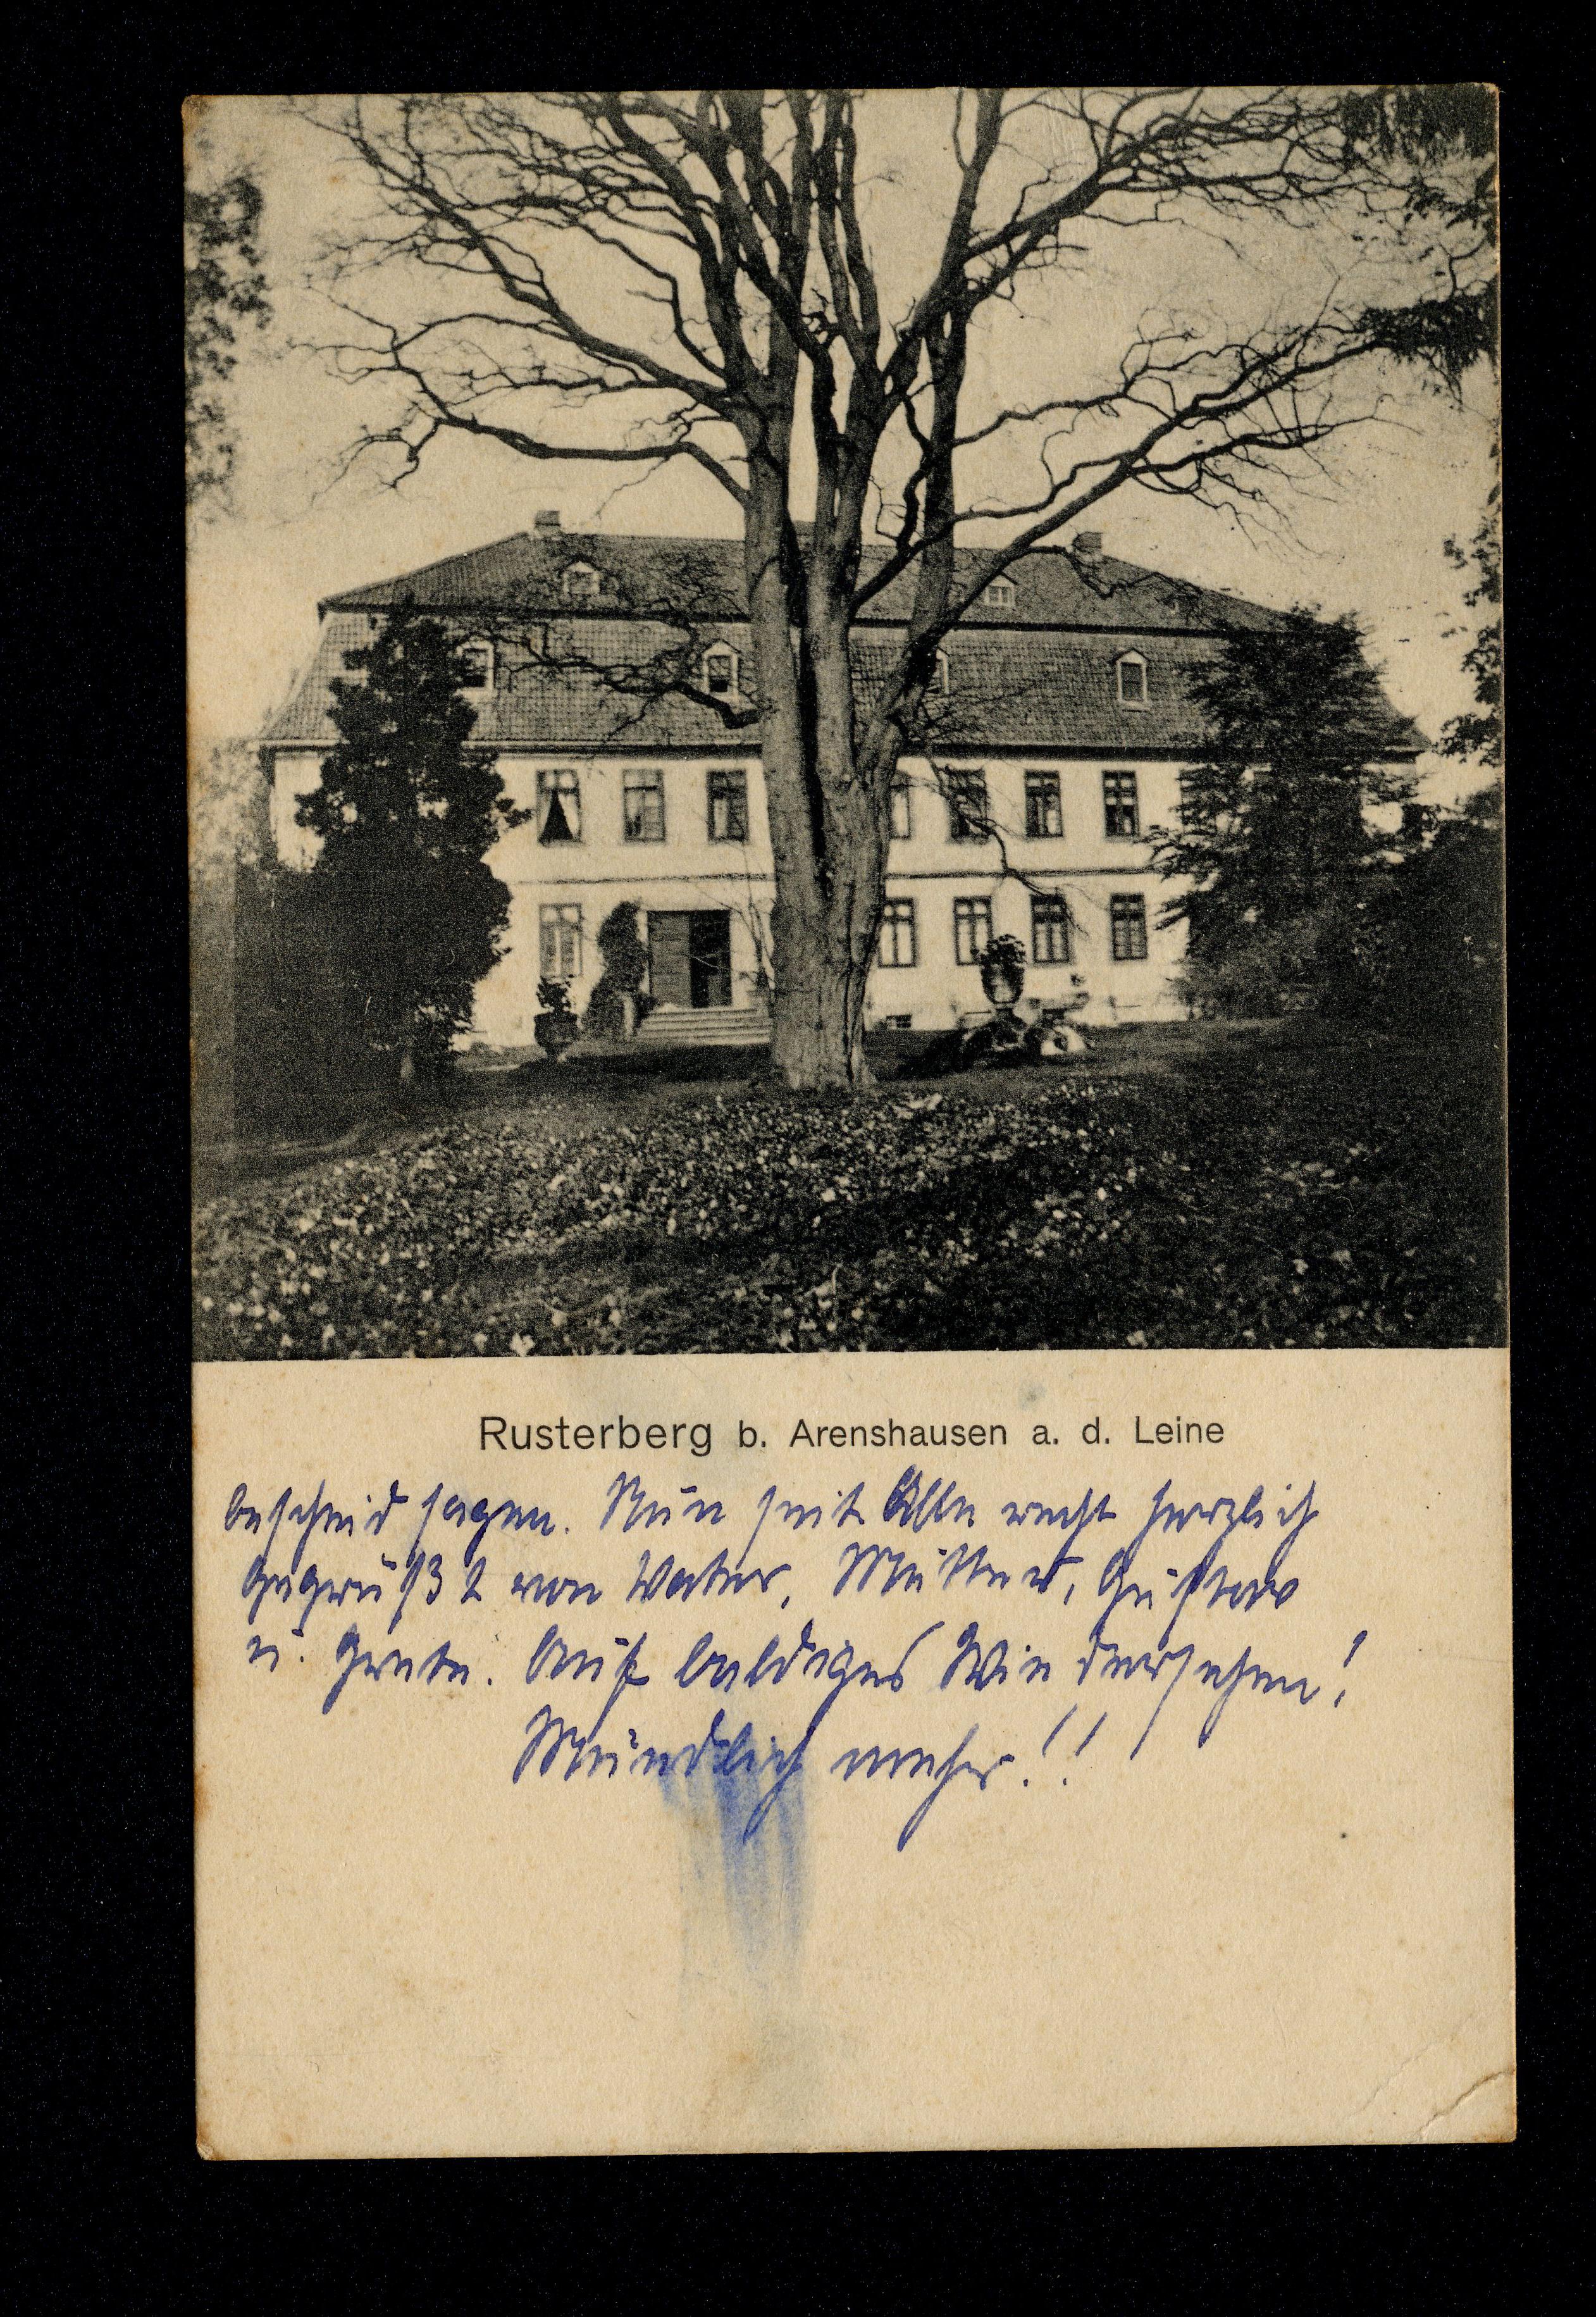 Rusterberg b. Arenshausen a. d. Leine
bescheid sagen. Nun seit Alle recht herzlich
Gegrüßt von Vater, Mutter, Gustav
u. Grete. Auf baldiges Wiedersehen!
Mündlich mehr!!